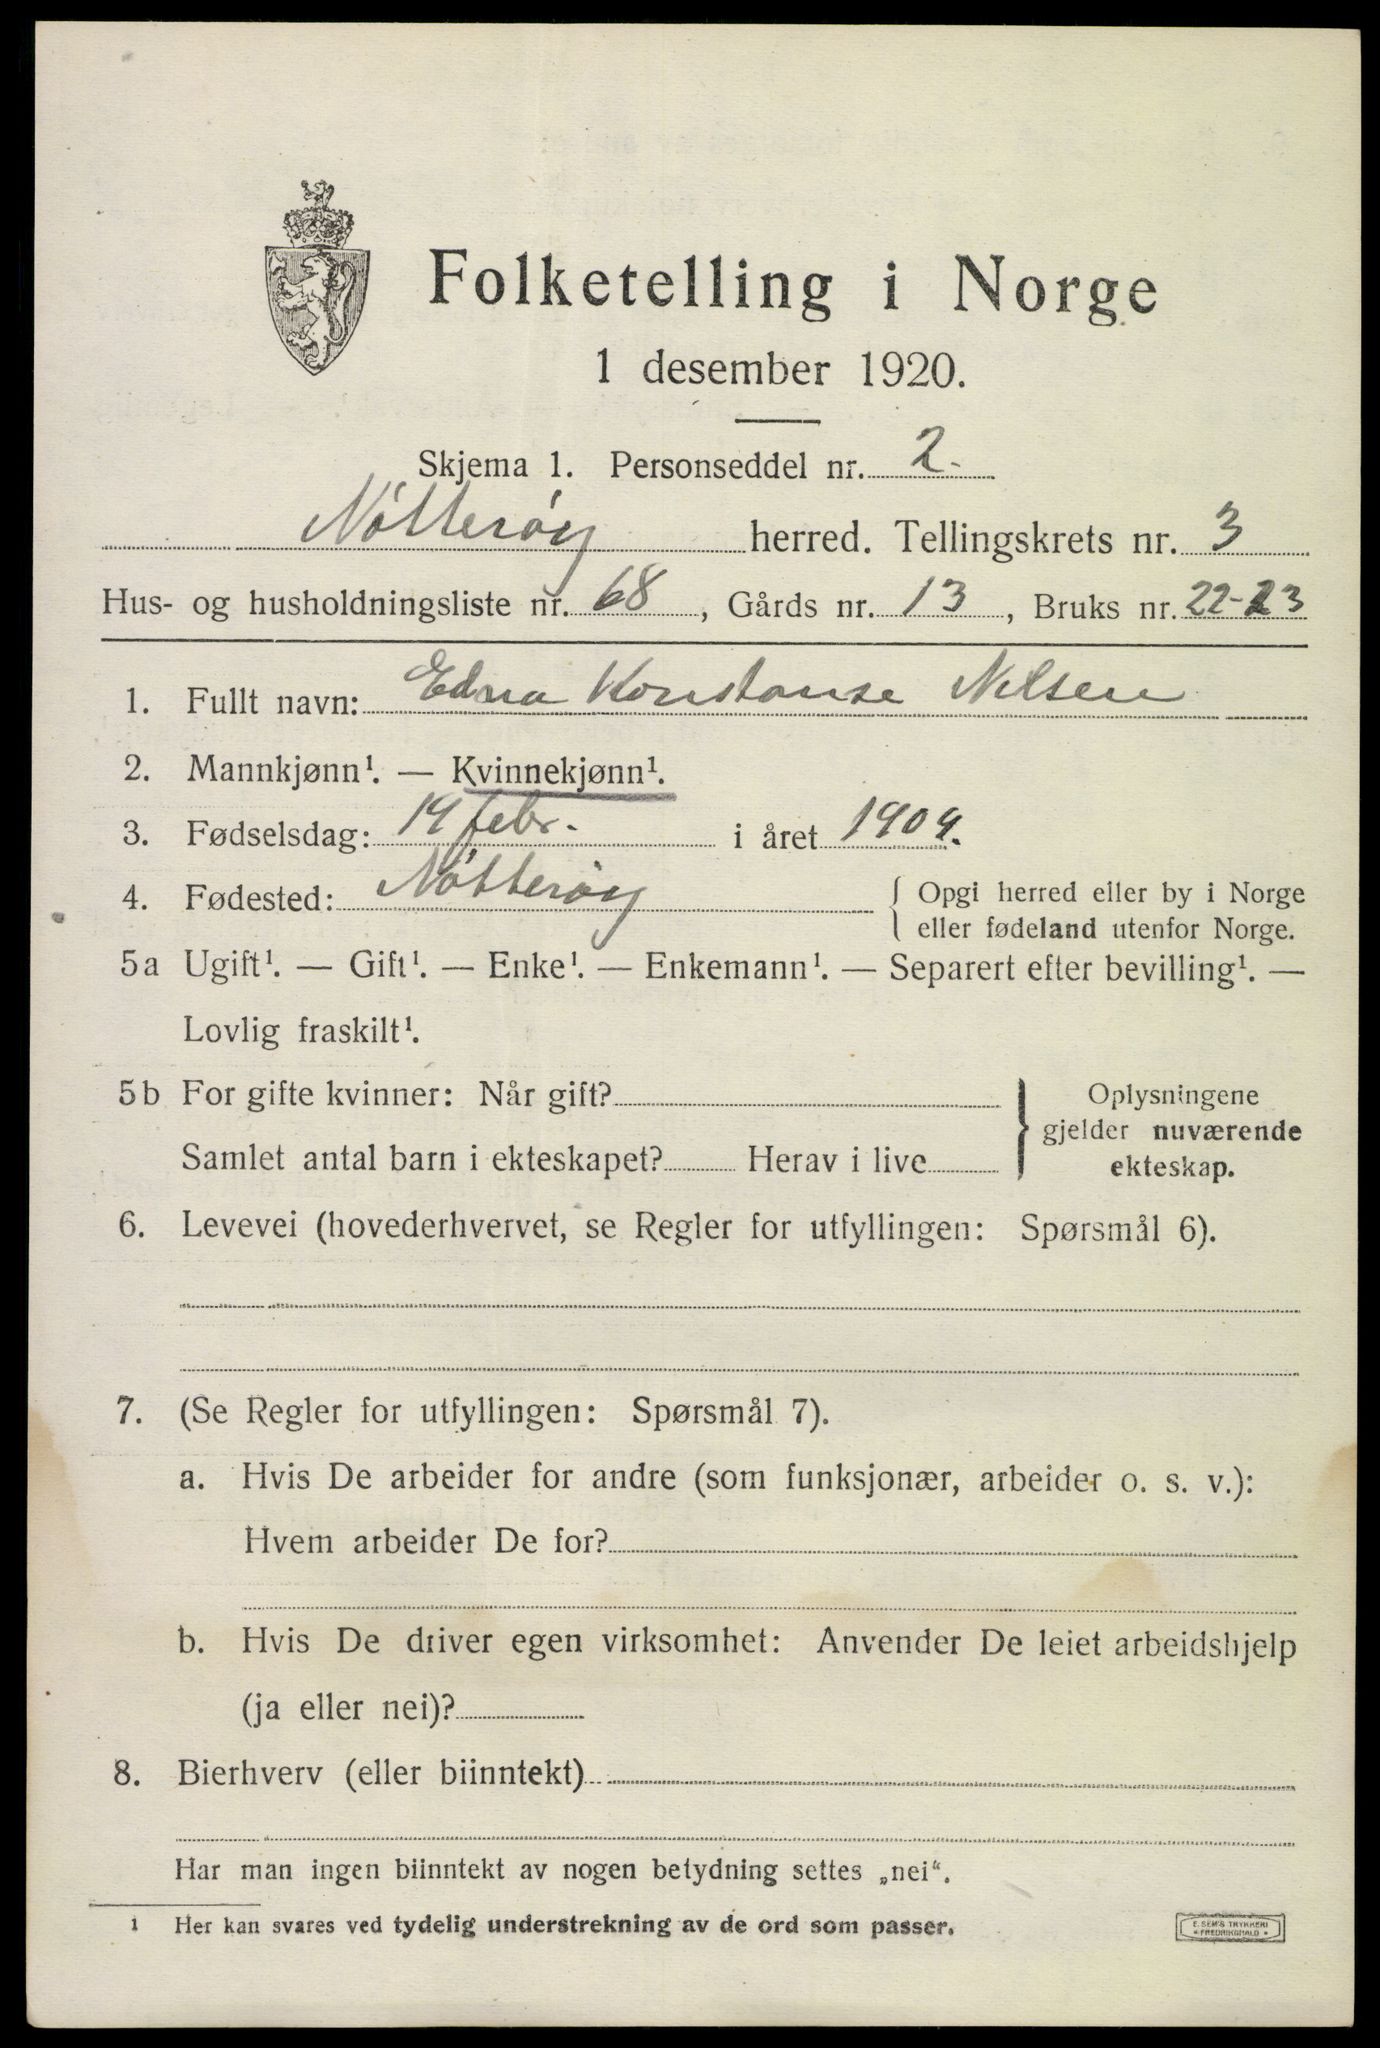 Folketelling i Norge
1 desember 1920.
Skjema 1. Personseddel nr. 2.
Nótterøy herred. Tellingskrets nr. 3
Hus- og husholdningsliste nr. 68, Gårds nr. 13, Bruks nr. 22-23
1. Fullt navn: Edna Konstanse Nilsen
2. Mannkjønn¹. — Kvinnekjønn¹.
3. Fødselsdag: 19 febr. i året 1909.
4. Fødested: Nótterøy { Opgi herred eller by i Norge
eller fødeland utenfor Norge.
5a Ugift¹. — Gift¹. — Enke¹. — Enkemann¹. — Separert efter bevilling¹. —
Lovlig fraskilt¹.
5b For gifte kvinner: Når gift? } Oplysningene
gjelder nuværende
Samlet antal barn i ekteskapet? Herav i live ekteskap.
6. Levevei (hovederhvervet, se Regler for utfyllingen: Spørsmål 6).
7. (Se Regler for utfyllingen: Spørsmål 7).
a. Hvis De arbeider for andre (som funksjonær, arbeider o. s. v.):
Hvem arbeider De for?
b. Hvis De driver egen virksomhet: Anvender De leiet arbeidshjelp
(ja eller nei)?
8. Bierhverv (eller biinntekt)
Har man ingen biinntekt av nogen betydning settes „nei“.
1 Her kan svares ved tydelig understrekning av de ord som passer.
E. SEM'S TRYKKERI
* FREDRIKSHALD *